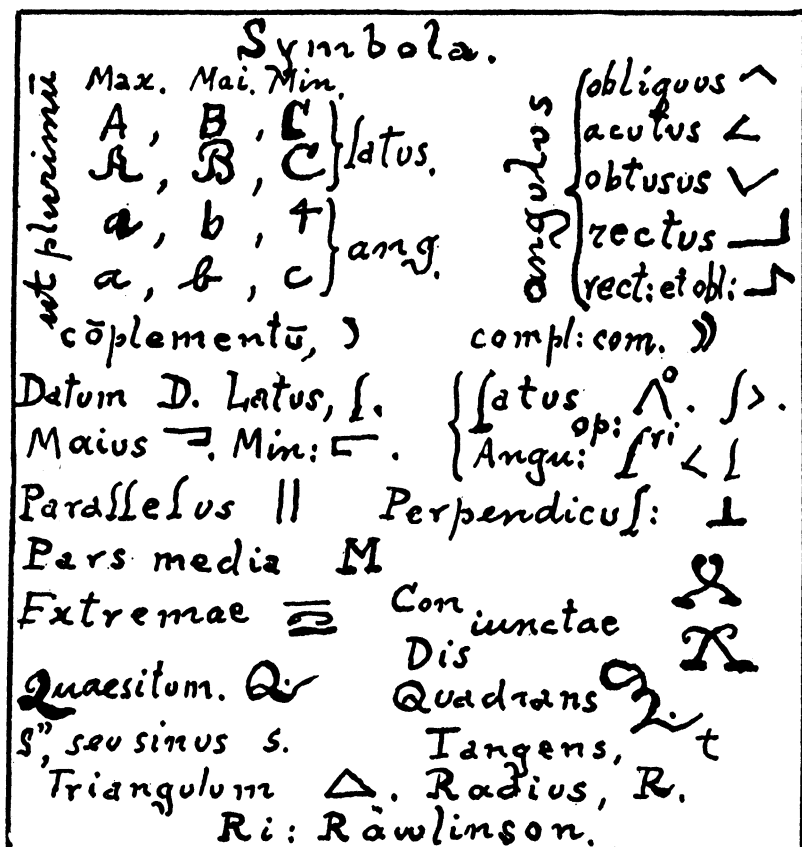 Symbola.
ut plurimū
Max. Mai. Min.
A, B, C
A, B, C } latus.
a, b, 4
a, b, c } ang.
angulus
obliquus ^
acutus ∠
obtusus ∨
rectus ⏌
rect: et obl:
cōplementū, )
compl: com. ))
Datum D. Latus, ʃ.
Maius ⫎. Min: ⫍.
latus op: Λ°. ʃ>.
Angu: ʃri < ʃ
Parallelus ||
Perpendicul: ⊥
Pars media M
Extremae
Con
iunctae
Dis
Quaesitum. Q:
Quadrans Q.
s", seu sinus s.
Tangens, t
Triangulum △. Radius, R.
Ri: Rawlinson.